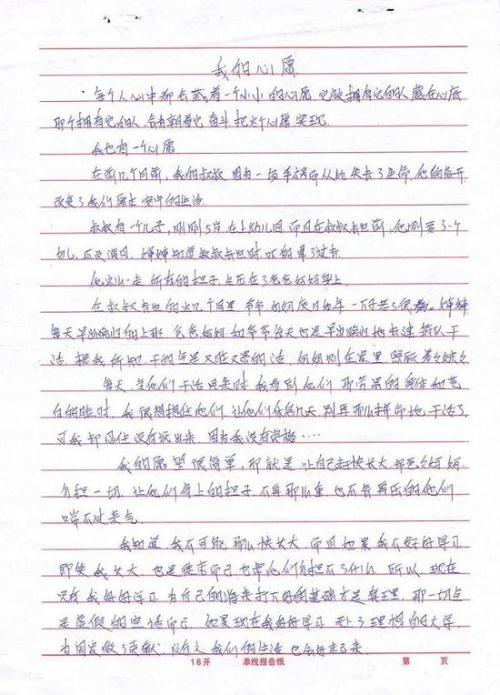 我的心愿
每个人心中都会藏着一个小小的心愿 它被拥有它的人藏在心底
那个拥有它的人 会朝着它奋斗 把这个心愿实现.
我也有一个心愿
在前几个月前, 我的叔叔 因为一场车祸而从此失去了生命, 他的离开
改变了我们原本安宁的生活
叔叔有一个儿子, 刚刚5岁 在上幼儿园 而且在叔叔去世前, 他刚要了一个
女儿, 不及满月. 婶婶知道叔叔去世时
他这么一走 所有的担子 全压在了爸爸妈妈身上
在叔叔去世的这几个月里 爷爷 奶奶 一下子老了很多. 婶婶
每天早出晚归的上班 爸爸妈妈 和爷爷每天也是早出晚归地去建筑队干
活, 据我所知 干的全是又脏又累的活, 奶奶则在家里 照顾弟弟妹妹
每天, 当他们干活回来时 我看到他们 那劳累的身体和苍
白的脸时, 我很想抱住他们, 让他们休息几天 别再那么拼命地干活了
可我却忍住没有说出来, 因为我没有资格····
我的愿望很简单, 那就是 让自己赶快长大 帮爸爸妈妈
分担一切. 让他们身上的担子 不再那么重, 也不会再压的他们
喘不过来气.
我知道 我不可能 那么快长大, 而且如果我不好好学习
即使我长大, 也是徒劳而已 也帮他们分担不了什么 所以 现在
只有我好好学习 为自己的将来打下好的基础才是真理, 那一切
是虚假的空话而已 如果现在我好好学习 考上了理想的大学
为国家做了贡献 我们的生活 也会好起来
16开 单线报告纸 第 页